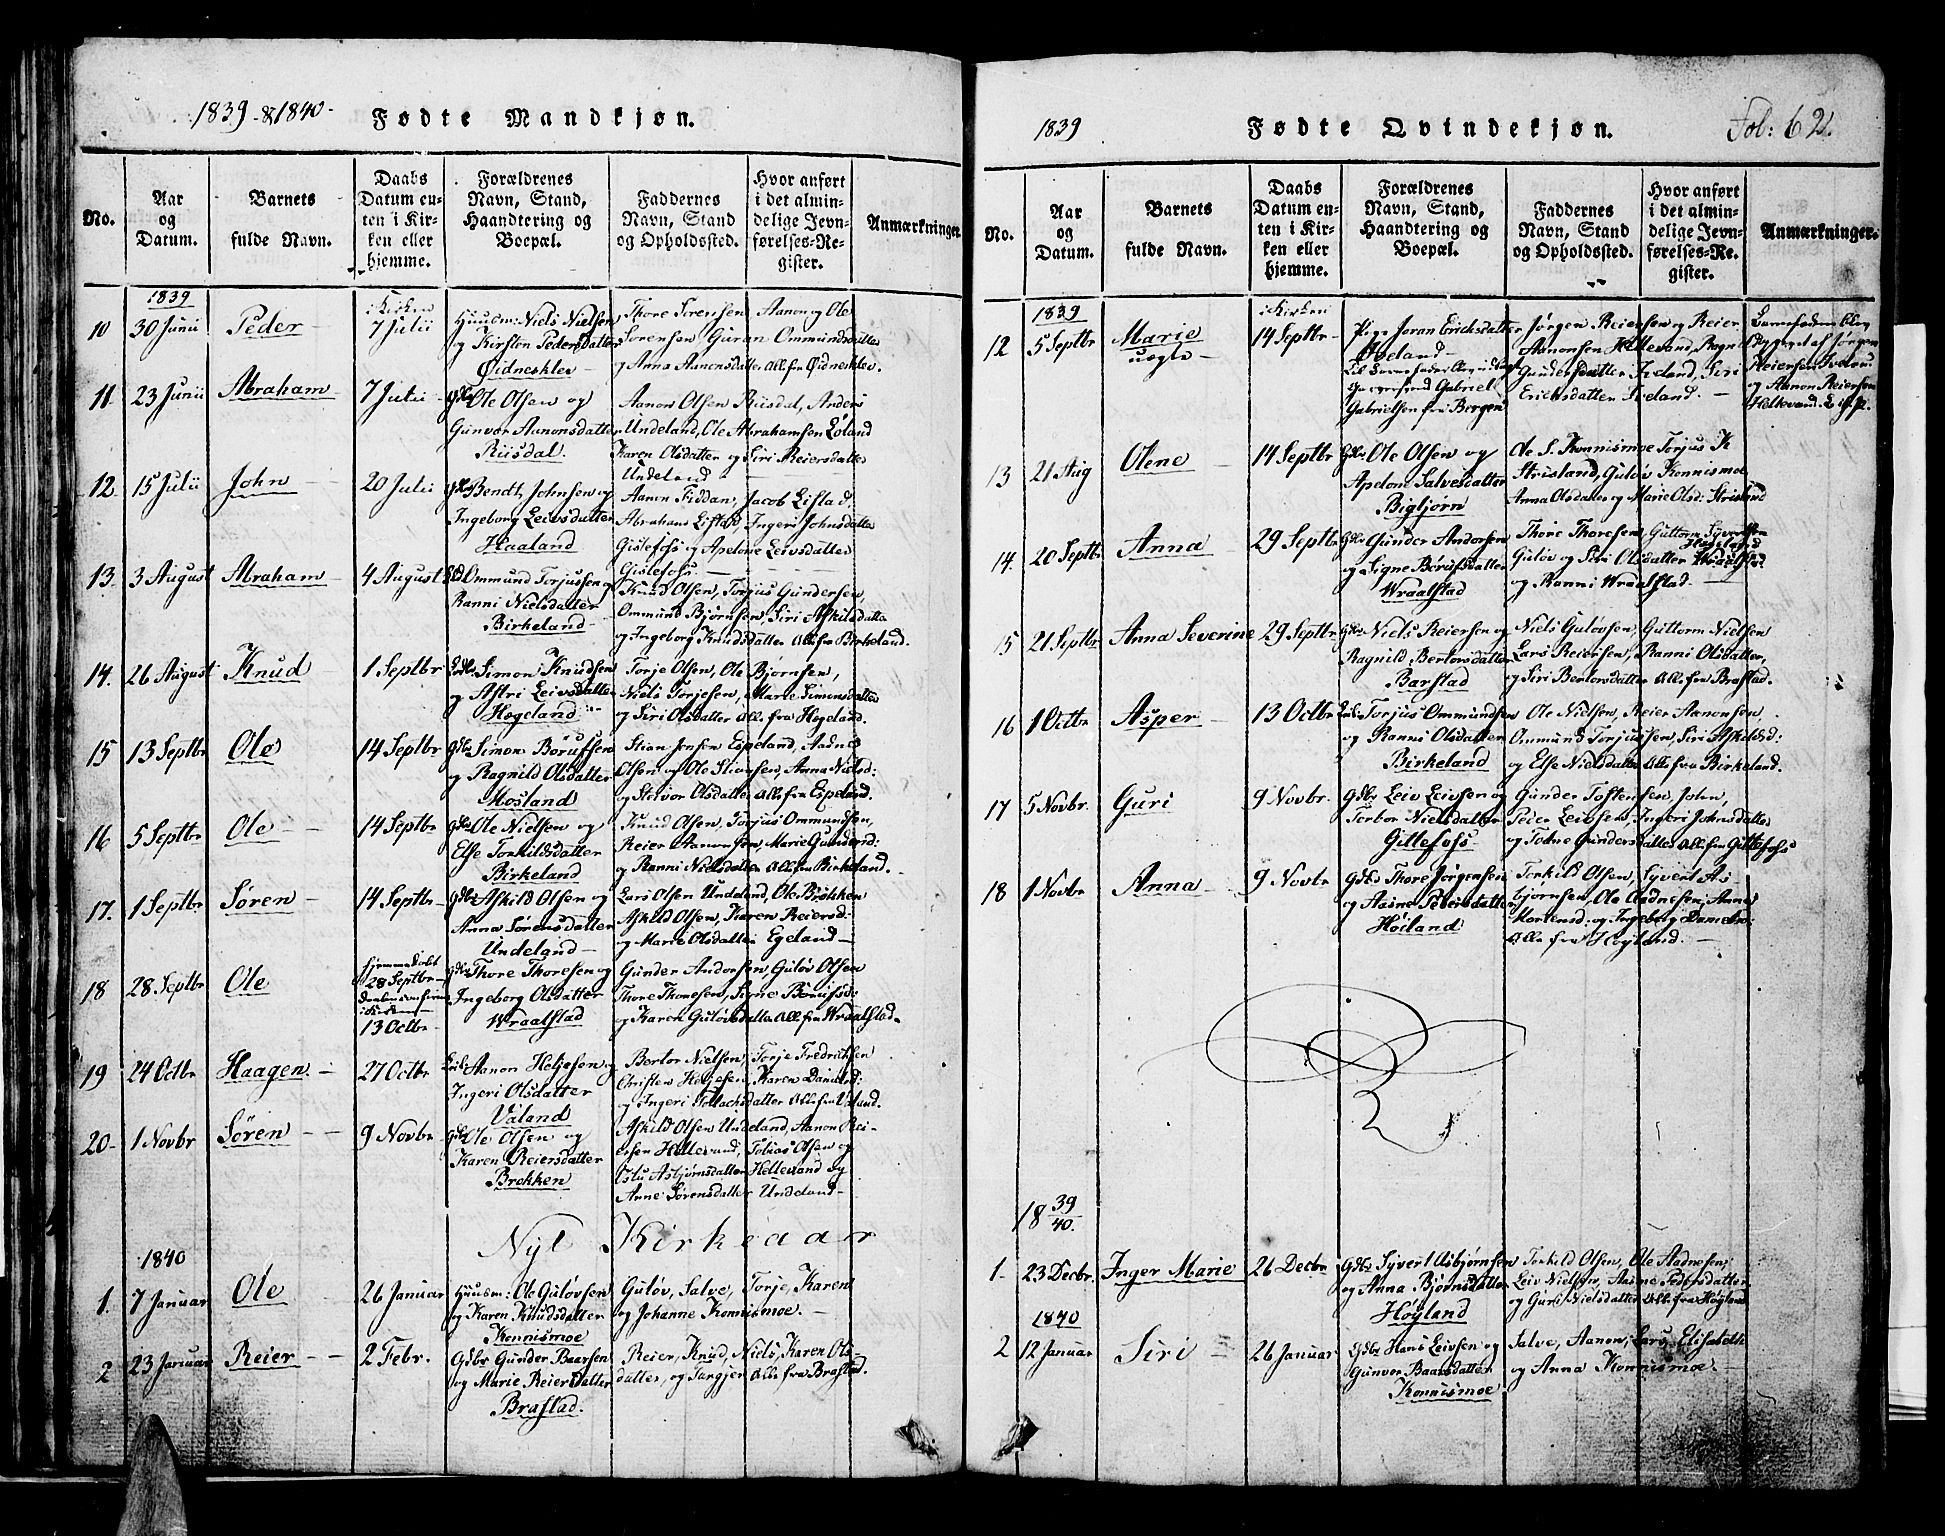 1839 & 1840
Fødte Mandkjøn.
No.
Aar
og
Datum.
Barnets
fulde Navn.
Daabs
Datum en-
ten i Kir-
ken eller
hjemme.
Forældrenes
Navn, Stand,
Haandtering og
Boepæl.
Faddernes
Navn, Stand
og Opholdssted.
Hvor anført
i det almin-
delige Jevn-
førelses-Re-
gister.
Anmærkninger.
1839
10 30 Junii Peder
i Kirken
7 Julii
Huusm: Niels Nielsen
og Kirsten Pedersdatter
Øidneskler
Thore Sørensen Aanon og Ole
Sørensen Guran Ommundsdatter
og Anna Aanonsdatter Alle fra Øidneskler.
11. 23 Junii Abraham 7 Julii
Gdbr Ole Olsen og
Gunvor Aanonsdatter
Riisdal.
Aanon Olsen Riisdal, Anders
Undeland, Ole Abrahamsen Løland
Karen Olsdatter og Siri Reiersdatter
Undeland
12. 15 Julii John 20 Julii
Gdbr Bendt Johnsen og
Ingeborg Leivsdatter
Haaland
Aanon Fiddan, Jacob Liestad,
Abraham Liestad, Ingeri Johnsdatter
Gislefoss og Apelone Leivsdatter
Gislefoss
13. 3 August Abraham 4 August
Ommund Torjussen og
Ranni Nielsdatter
Birkeland
Knud Olsen, Torjus Gundersen,
Ommund Bjørnsen, Siri Askilsdatter
og Ingeborg Knudsdatter Alle fra Birkeland.
14. 26 August Knud 1 Septbr
Simon Knudsen
og Astri Leivsdatter
Hægeland
Torje Olsen, Ole Bjørnsen,
Niels Torjesen, Marie Simonsdatter
og Siri Olsdatter Alle fra Hægeland.
15 13 Septbr Ole 14 Septbr
Gdbr Simon Børufsen
og Ragnild Olsdatter
Mosland
Stian Jensen Espeland, Aadne
Olsen og Ole Stiansen, Anna Nielsd:
og Stelvor Olsdatter Alle fra Espeland.
16 5 Septbr Ole 14 Septbr
Gdbr Ole Nielsen og
Else Torkildsdatter
Birkeland
Knud Olsen, Torjus Ommundsen,
Reier Aanonsen, Marie Gundersd:
og Ranni Nielsdatter Alle fra Birkeland.
17. 1 Septbr Søren 14 Septbr
Gdbr Askild Olsen og
Anna Sørensdatter
Undeland
Lars Olsen Undeland, Ole Brekken
Askild Olsen, Karen Reiersd:
og Marie Olsdatter Egeland
18 28 Septbr Ole
hjemmedøbt
28 Septbr
i Kirken
13 Octbr
Gdbr Thore Thoresen og
Ingeborg Olsdatter
Wraalstad
Gunder Andorsen, Guløv Olsen
Thore Thoresen, Signe Børufsd:
og Karen Guløvsdatter Alle fra Wraalstad.
19 24 Octbr Haagen 27 Octbr
Aanon Heljesen og
Ingeri Olsdatter
Valand
Bertor Nielsen, Torje Fredriksen
Christen Heljesen, Karen Danielsd:
og Ingeri Tellachsdatter Alle fra Valand.
20 1 Novbr Søren 9 Novbr
Gdbr Ole Olsen og
Karen Reiersdatter
Brekken
Askild Olsen Undeland, Aanon Rei-
ersen Hellevand, Tobias Olsen og
Asbjørnsdatter Hellevand og
Anne Sørensdatter Undeland
Nyt Kirkeaar
1840
1. 7 Januar Ole 26 Januar
Huusm: Ole Guløvsen
og Karen Knudsdatter
Konnismoe
Guløv, Salve, Torje, Karen
og Johanne Konnismoe.
2 23 Januar Reier 2 Febr.
Gdbr Gunder Baarsen
og Marie Reiersdatter
Brastad.
Reier, Knud, Niels, Karen Ols-
datter, og Jangjer Alle fra Brastad.
1839
Fødte Qvindekjøn.
Fol: 62.
No.
Aar
og
Datum.
Barnets
fulde Navn.
Daabs
Datum en-
ten i Kir-
ken eller
hjemme.
Forældrenes
Navn, Stand,
Haandtering og
Boepæl.
Faddernes
Navn, Stand
og Opholdssted.
Hvor anført
i det almin-
delige Jevn-
førelses-Re-
gister.
Anmærkninger.
1839
12 5 Septbr Marie
uægte
i Kirken
14 Septbr
Pige Joran Ericksdatter
Iveland
Gabriel
Gabrielsen fra Bergen
Jørgen Reiersen og Reier
Aanonsen Hellevand, Ragn:
Gundersdatter Iveland, Siri
Ericksdatter Iveland.
Barnefader blev
af Jørgen
Reiersen Iveland
og Aanon Reiersen
Hellevand
13 21 Aug Olene 14 Septbr
Gdbr Ole Olsen og
Apelone Salvesdatter
Bigljørn
Ole S. Konnismoe Torjus K
Strisland, Guløv Konnismoe
Anna Olsdatter og Marie Olsd: Strisland
14. 20 Septbr Anna 29 Septbr
Gdbr Gunder Andorsen
og Signe Børufsdatter
Wraalstad
Thore Thoresen, Guttorm Syvertsen
Guløv og Siri Olsdatter
og Ranni Wraalstad.
15 21 Septbr Anna Severine 29 Septbr
Gdbr Niels Reiersen og
Ragnild Bertorsdatter
Barstad
Niels Guløvsen, Guttorm Nielsen
Lars Reiersen, Ranni Olsdatter,
og Siri Bertorsdatter Alle fra Brastad.
16 1 Octbr Asper 13 Octbr
Torjus Ommundsen
og Ranni Olsdatter
Birkeland
Ole Nielsen, Reier Aanonsen,
Ommund Torjussen, Siri Askildsd:
og Else Nielsdatter Alle fra Birkeland.
17 5 Novbr. Guri 9 Novbr.
Gdbr Leiv Leivsen og
Terbor Nielsdatter
Gillefoss
Gunder Tostensen, John,
Peder Leivsen, Ingeri Johnsdatter
og Tobine Gundersdatter Alle fra Gittefoss
18 1 Novbr Anna 9 Novbr
Gdbr Thore Jørgensen
og Aasine Pedersdatter
Høiland
Torkild Olsen, Syvert As-
bjørnsen, Ole Aadnesen, Anna
Mortensd: og Ingeborg
Alle fra Høyland.
18 39/40.
1. 23 Decbr. Inger Marie 26 Decbr
Gdbr Syvert Asbjørnsen
og Anna Bjørnsdatter
Høyland
Torkild Olsen, Ole Aadnesen,
Leiv Nielsen, Aasine Pedersdatter
og Guri Nielsdatter Alle fra Høyland
1840
2 12 Januar Siri 26 Januar
Gdbr Hans Leivsen og
Gunvor Baarsdatter
Konnismoe
Salve, Aanon, Lars, Elisabeth
og Anna Konnismoe